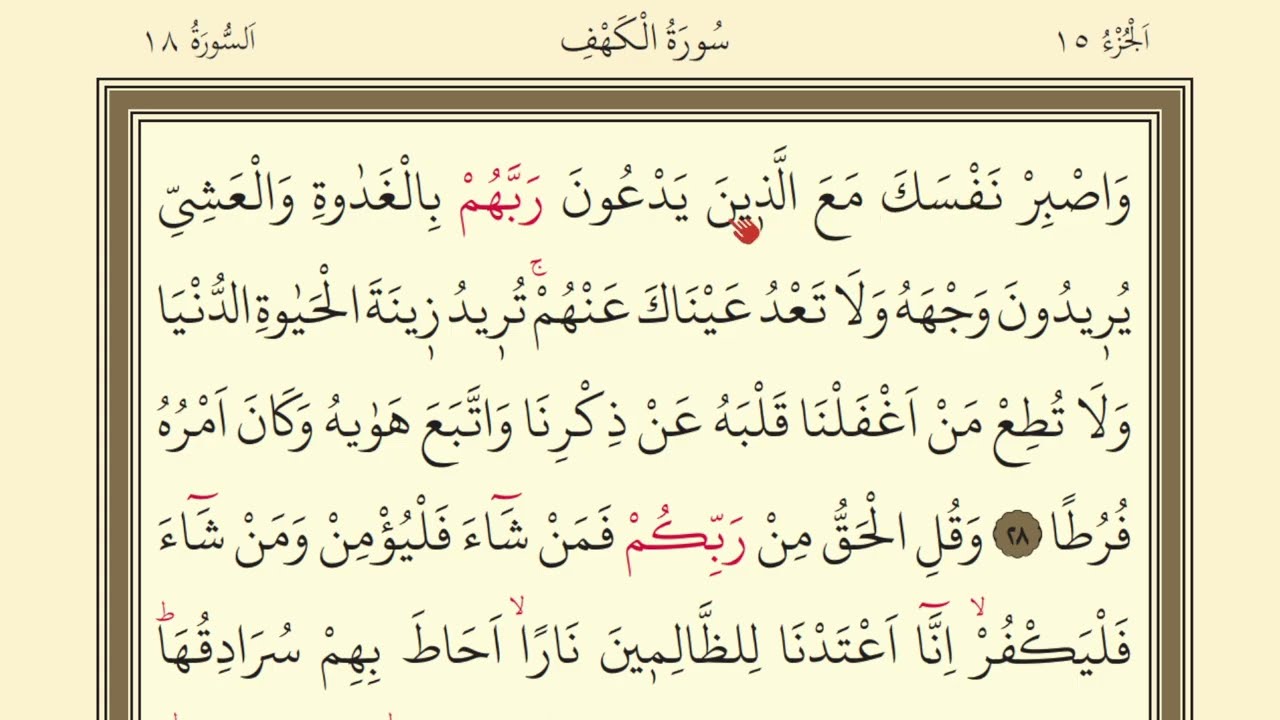 اَلْجُزْءُ ١٥ سُورَةُ الْكَهْفِ اَلسُّورَةُ ١٨
وَاصْبِرْ نَفْسَكَ مَعَ الَّذ۪ينَ يَدْعُونَ رَبَّهُمْ بِالْغَدٰوةِ وَالْعَشِيِّ
يُر۪يدُونَ وَجْهَهُ وَلَا تَعْدُ عَيْنَاكَ عَنْهُمْۚ تُر۪يدُ ز۪ينَةَ الْحَيٰوةِ الدُّنْيَا
وَلَا تُطِعْ مَنْ اَغْفَلْنَا قَلْبَهُ عَنْ ذِكْرِنَا وَاتَّبَعَ هَوٰيهُ وَكَانَ اَمْرُهُ
فُرُطًا ٢٨ وَقُلِ الْحَقُّ مِنْ رَبِّكُمْ فَمَنْ شَٓاءَ فَلْيُؤْمِنْ وَمَنْ شَٓاءَ
فَلْيَكْفُرْۙ اِنَّٓا اَعْتَدْنَا لِلظَّالِم۪ينَ نَارًاۙ اَحَاطَ بِهِمْ سُرَادِقُهَاۜ